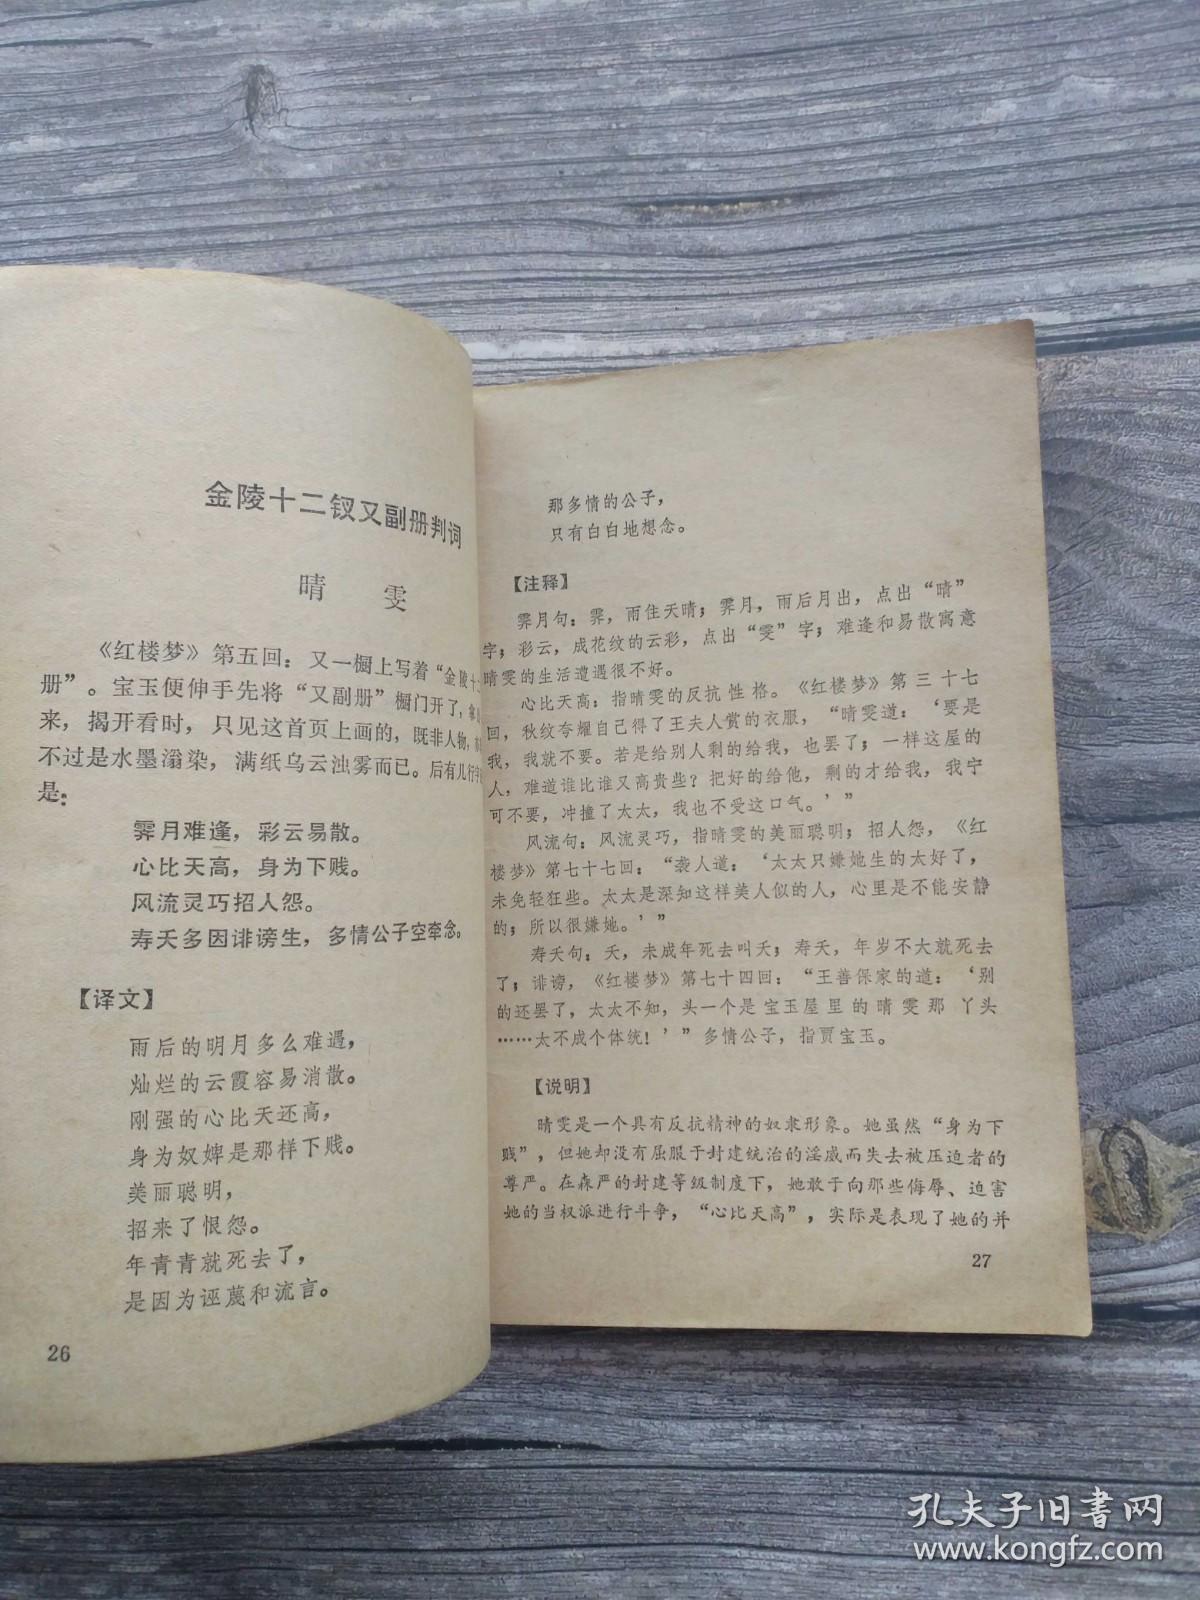 金陵十二钗又副册判词
晴雯
《红楼梦》第五回：又一橱上写着“金陵十二
册”。宝玉便伸手先将“又副册”橱门开了，拿
来，揭开看时，只见这首页上画的，既非人物，
不过是水墨滃染，满纸乌云浊雾而已。后有几行字
是：
霁月难逢，彩云易散。
心比天高，身为下贱。
风流灵巧招人怨。
寿夭多因诽谤生，多情公子空牵念。
【译文】
雨后的明月多么难遇，
灿烂的云霞容易消散。
刚强的心比天还高，
身为奴婢是那样下贱。
美丽聪明，
招来了恨怨。
年青青就死去了，
是因为诬蔑和流言。
26
那多情的公子，
只有白白地想念。
【注释】
霁月句：霁，雨住天晴；霁月，雨后月出，点出“晴”
字；彩云，成花纹的云彩，点出“雯”字；难逢和易散寓意
晴雯的生活遭遇很不好。
心比天高：指晴雯的反抗性格。《红楼梦》第三十七
回，秋纹夸耀自己得了王夫人赏的衣服，“晴雯道：‘要是
我，我就不要。若是给别人剩的给我，也罢了；一样这屋的
人，难道谁比谁又高贵些？把好的给他，剩的才给我，我宁
可不要，冲撞了太太，我也不受这口气。’”
风流句：风流灵巧，指晴雯的美丽聪明；招人怨，《红
楼梦》第七十七回：“袭人道：‘太太只嫌她生的太好了，
未免轻狂些。太太是深知这样美人似的人，心里是不能安静
的；所以很嫌她。’”
寿夭句：夭，未成年死去叫夭；寿夭，年岁不大就死去
了；诽谤，《红楼梦》第七十四回：“王善保家的道：‘别
的还罢了，太太不知，头一个是宝玉屋里的晴雯那丫头
……太不成个体统！’”多情公子，指贾宝玉。
【说明】
晴雯是一个具有反抗精神的奴隶形象。她虽然“身为下
贱”，但她却没有屈服于封建统治的淫威而失去被压迫者的
尊严。在森严的封建等级制度下，她敢于向那些侮辱、迫害
她的当权派进行斗争，“心比天高”，实际是表现了她的并
27
孔夫子旧书网
www.kongfz.com